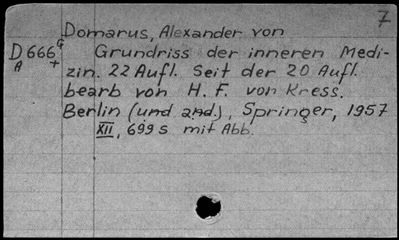 7
Domarus, Alexander von
D 666 G
A +
Grundriss der inneren Medi-
zin. 22 Aufl. Seit der 20 Aufl.
bearb von H. F. von Kress.
Berlin (und and.), Springer, 1957
XII, 699 s mit Abb.